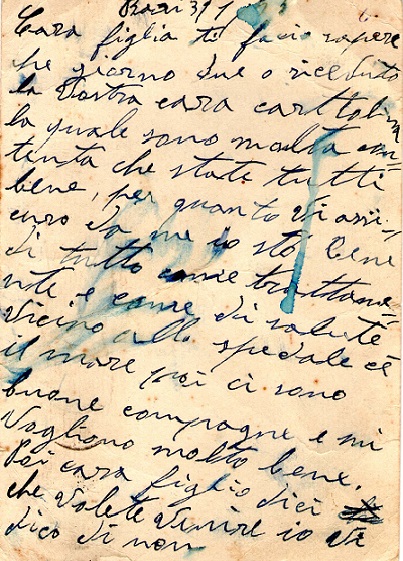 Bari 3 9 1
Cara figlia ti facio sapere
he giorno due o ricevuto
la vostra cara carttolina
la quale sono molta con-
tenta che state tutti
bene, per quanto vi assi-
curo da me io stò bene
di tutto come trattame-
nte e come di salute
vicino allo spedale cè
il mare poi ci sono
buone compagne e mi
vogliono molto bene.
Poi cara figlia dici
che volete venire io vi
dico di non